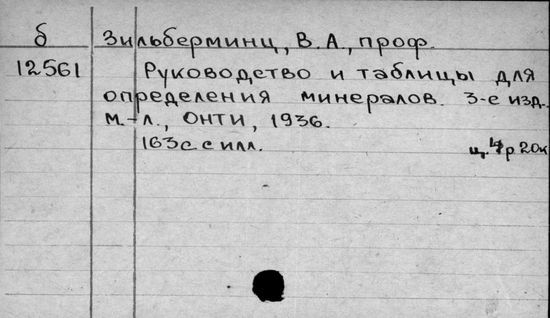 б Зильберминц, В.А., проф.
12561 Руководство и таблицы для
определения минералов. 3-е изд.
М.-Л., ОНТИ, 1936.
163с. с илл. ц. 4р 20к